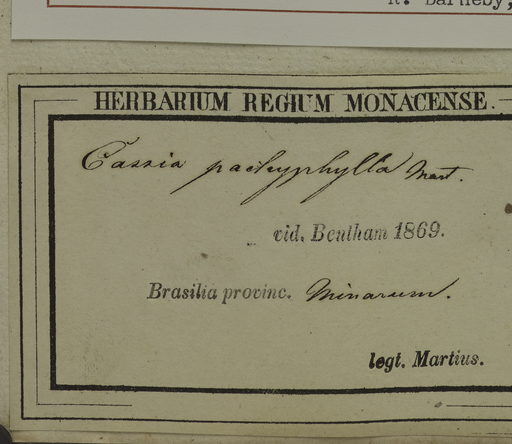 R. Barneby,
HERBARIUM REGIUM MONACENSE.
Cassia pachyphylla Mart.
vid. Bentham 1869.
Brasilia provinc. Minarum.
legt. Martius.